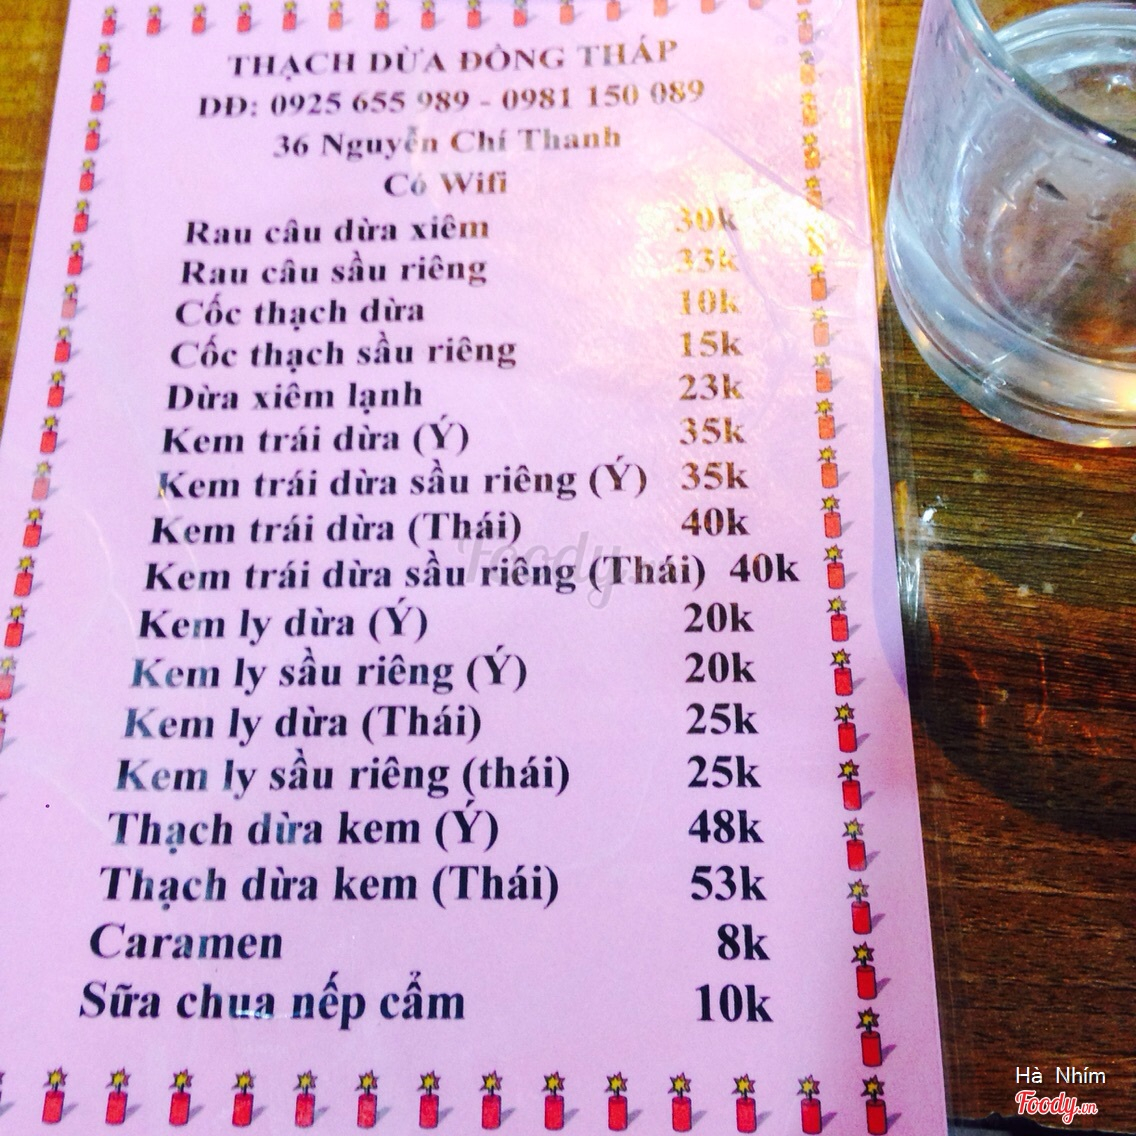 THẠCH DỪA ĐỒNG THÁP
DĐ: 0925 655 989 - 0981 150 089
36 Nguyễn Chí Thanh
Có Wifi
Rau câu dừa xiêm 30k
Rau câu sầu riêng 33k
Cốc thạch dừa 10k
Cốc thạch sầu riêng 15k
Dừa xiêm lạnh 23k
Kem trái dừa (Ý) 35k
Kem trái dừa sầu riêng (Ý) 35k
Kem trái dừa (Thái) 40k
Kem trái dừa sầu riêng (Thái) 40k
Kem ly dừa (Ý) 20k
Kem ly sầu riêng (Ý) 20k
Kem ly dừa (Thái) 25k
Kem ly sầu riêng (thái) 25k
Thạch dừa kem (Ý) 48k
Thạch dừa kem (Thái) 53k
Caramen 8k
Sữa chua nếp cẩm 10k
Foody
Hà Nhím
Foody.vn